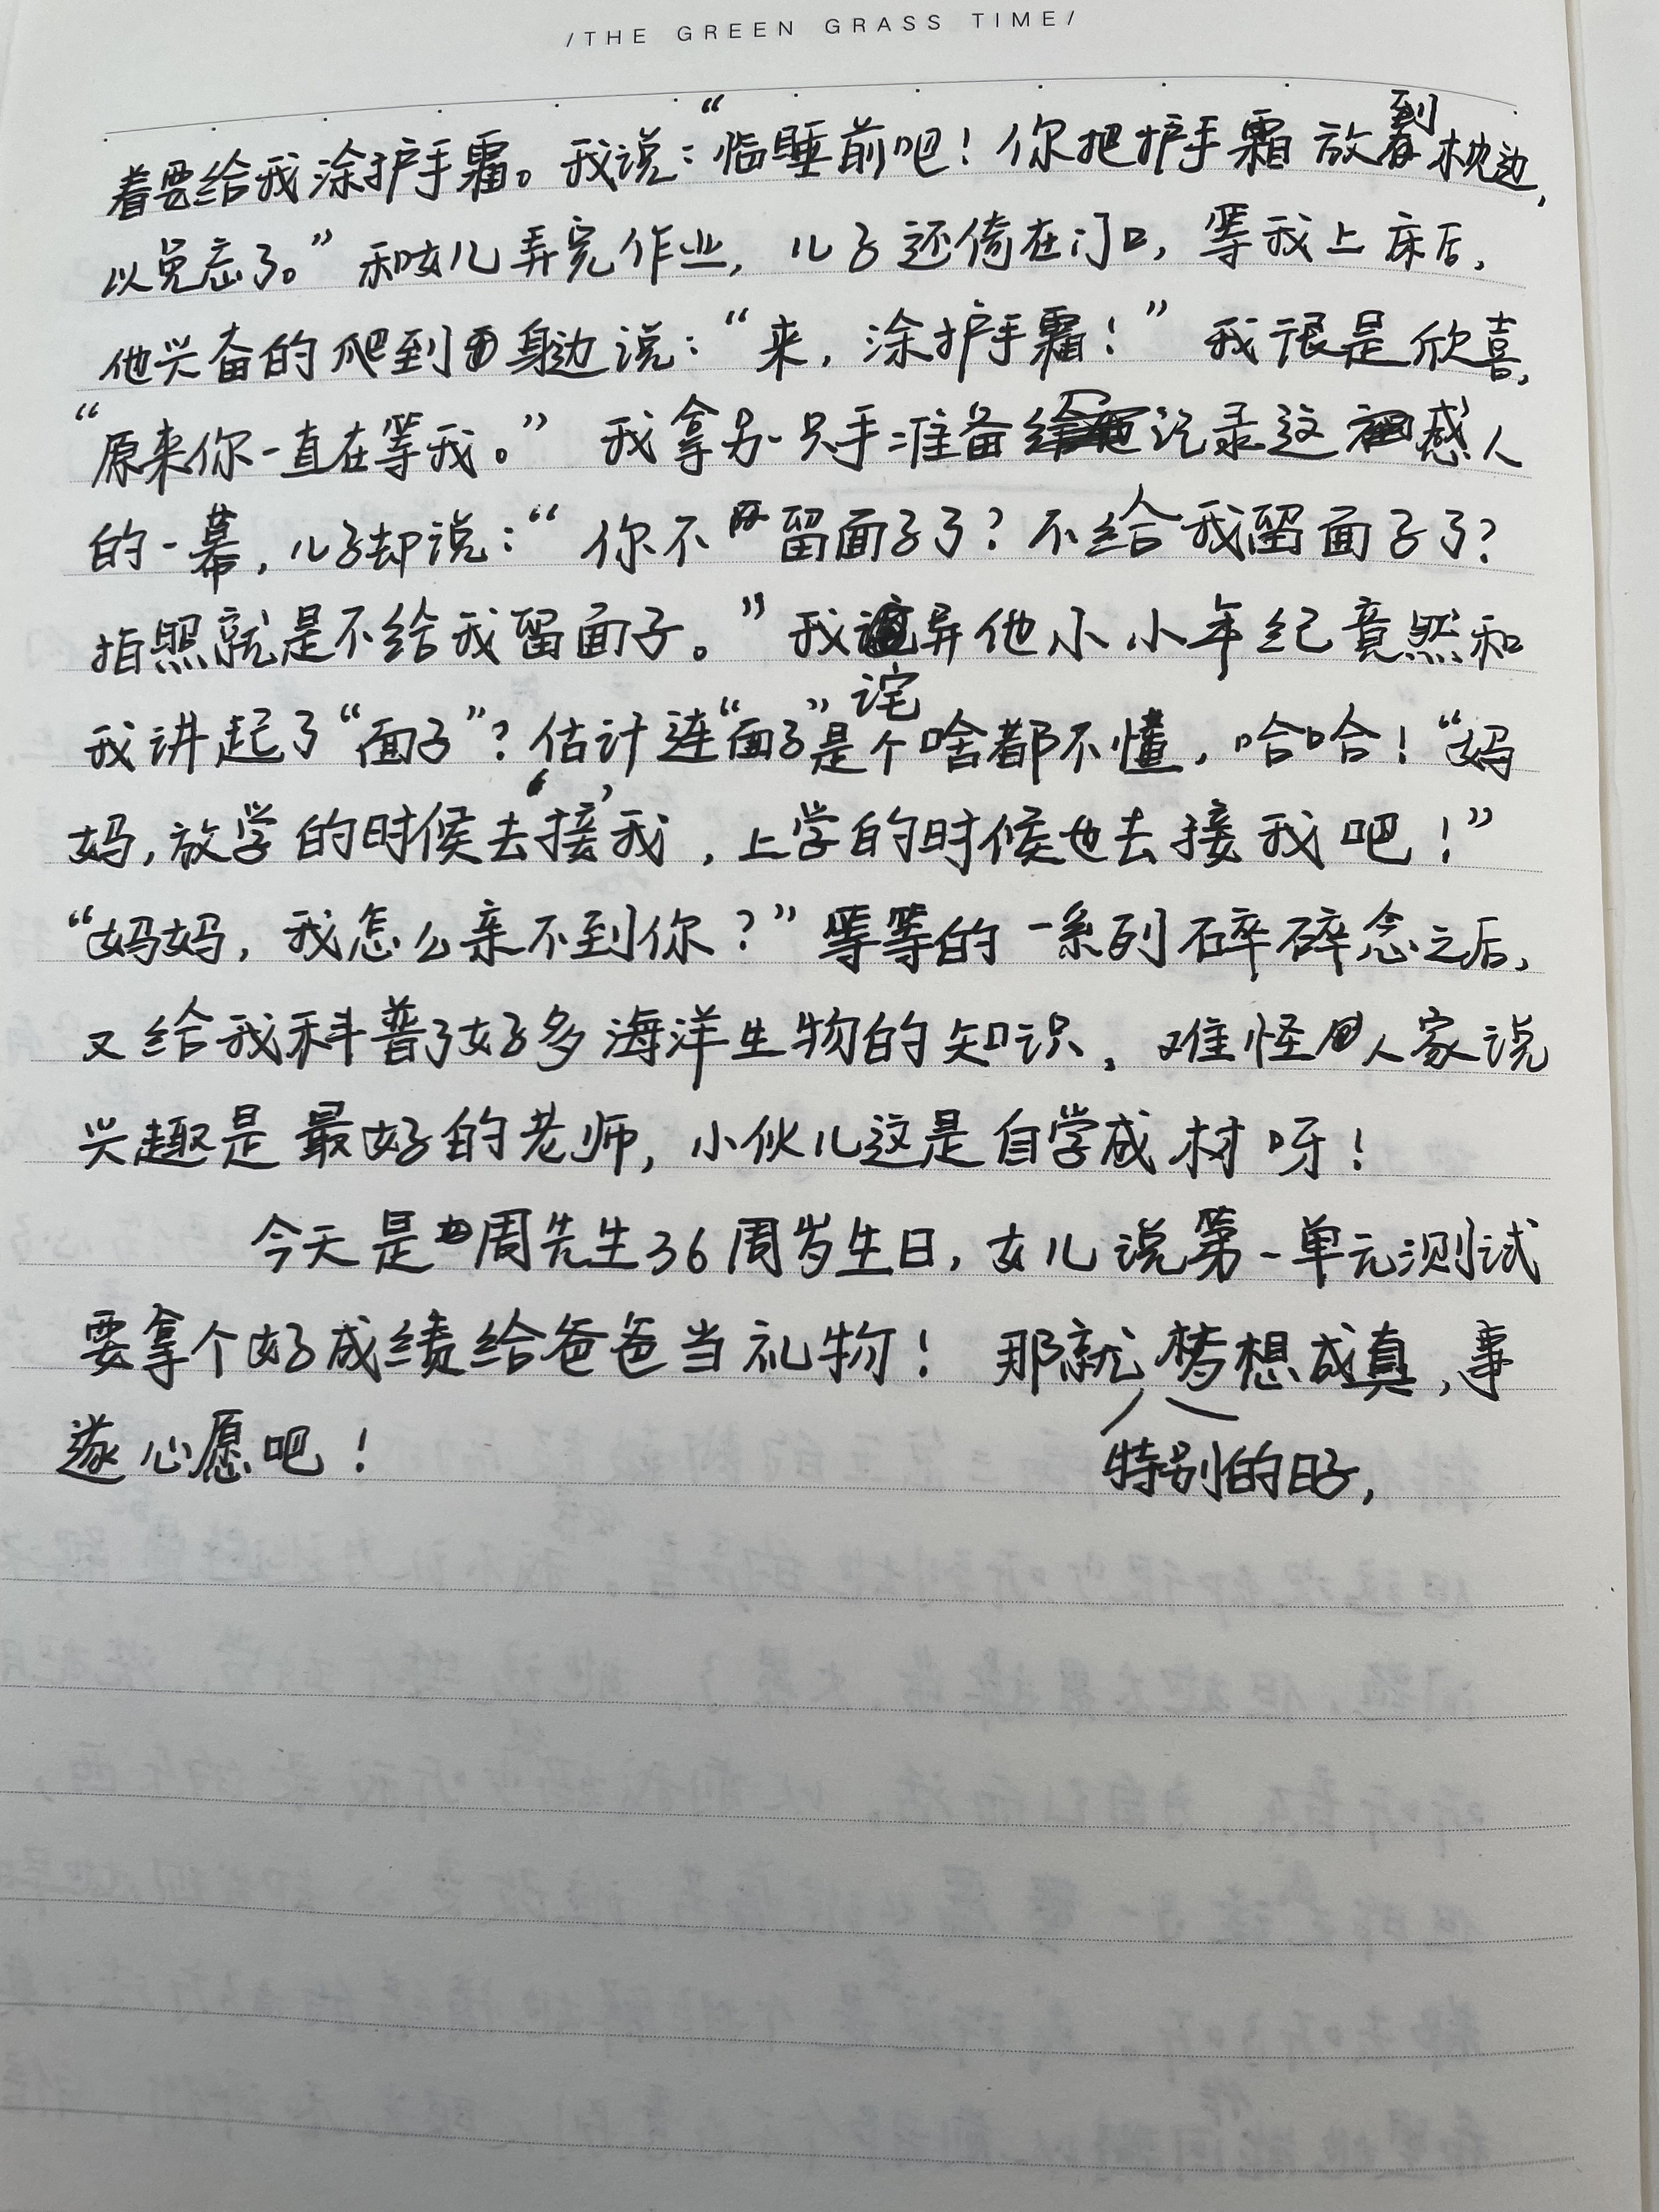 /THE GREEN GRASS TIME/
着要给我涂护手霜。我说：“临睡前吧！你把护手霜放到枕边，
以免忘了。”和女儿弄完作业，儿子还倚在门口，等我上床后，
他兴奋的爬到身边说：“来，涂护手霜！”我很是欣喜，
“原来你一直在等我。”我拿另一只手准备记录这感人
的一幕，儿子却说：“你不留面子了？不给我留面子了？
拍照就是不给我留面子。”我诧异他小小年纪竟然和
我讲起了“面子”？估计连“面子”是个啥都不懂，哈哈！“妈
妈，放学的时候去‘接’我，上学的时候也去接我吧！”
“妈妈，我怎么亲不到你？”等等的一系列碎碎念之后，
又给我科普了好多海洋生物的知识，难怪人家说
兴趣是最好的老师，小伙儿这是自学成材呀！
今天是周先生36周岁生日，女儿说第一单元测试
要拿个好成绩给爸爸当礼物！那就特别的日子，梦想成真，事
遂心愿吧！